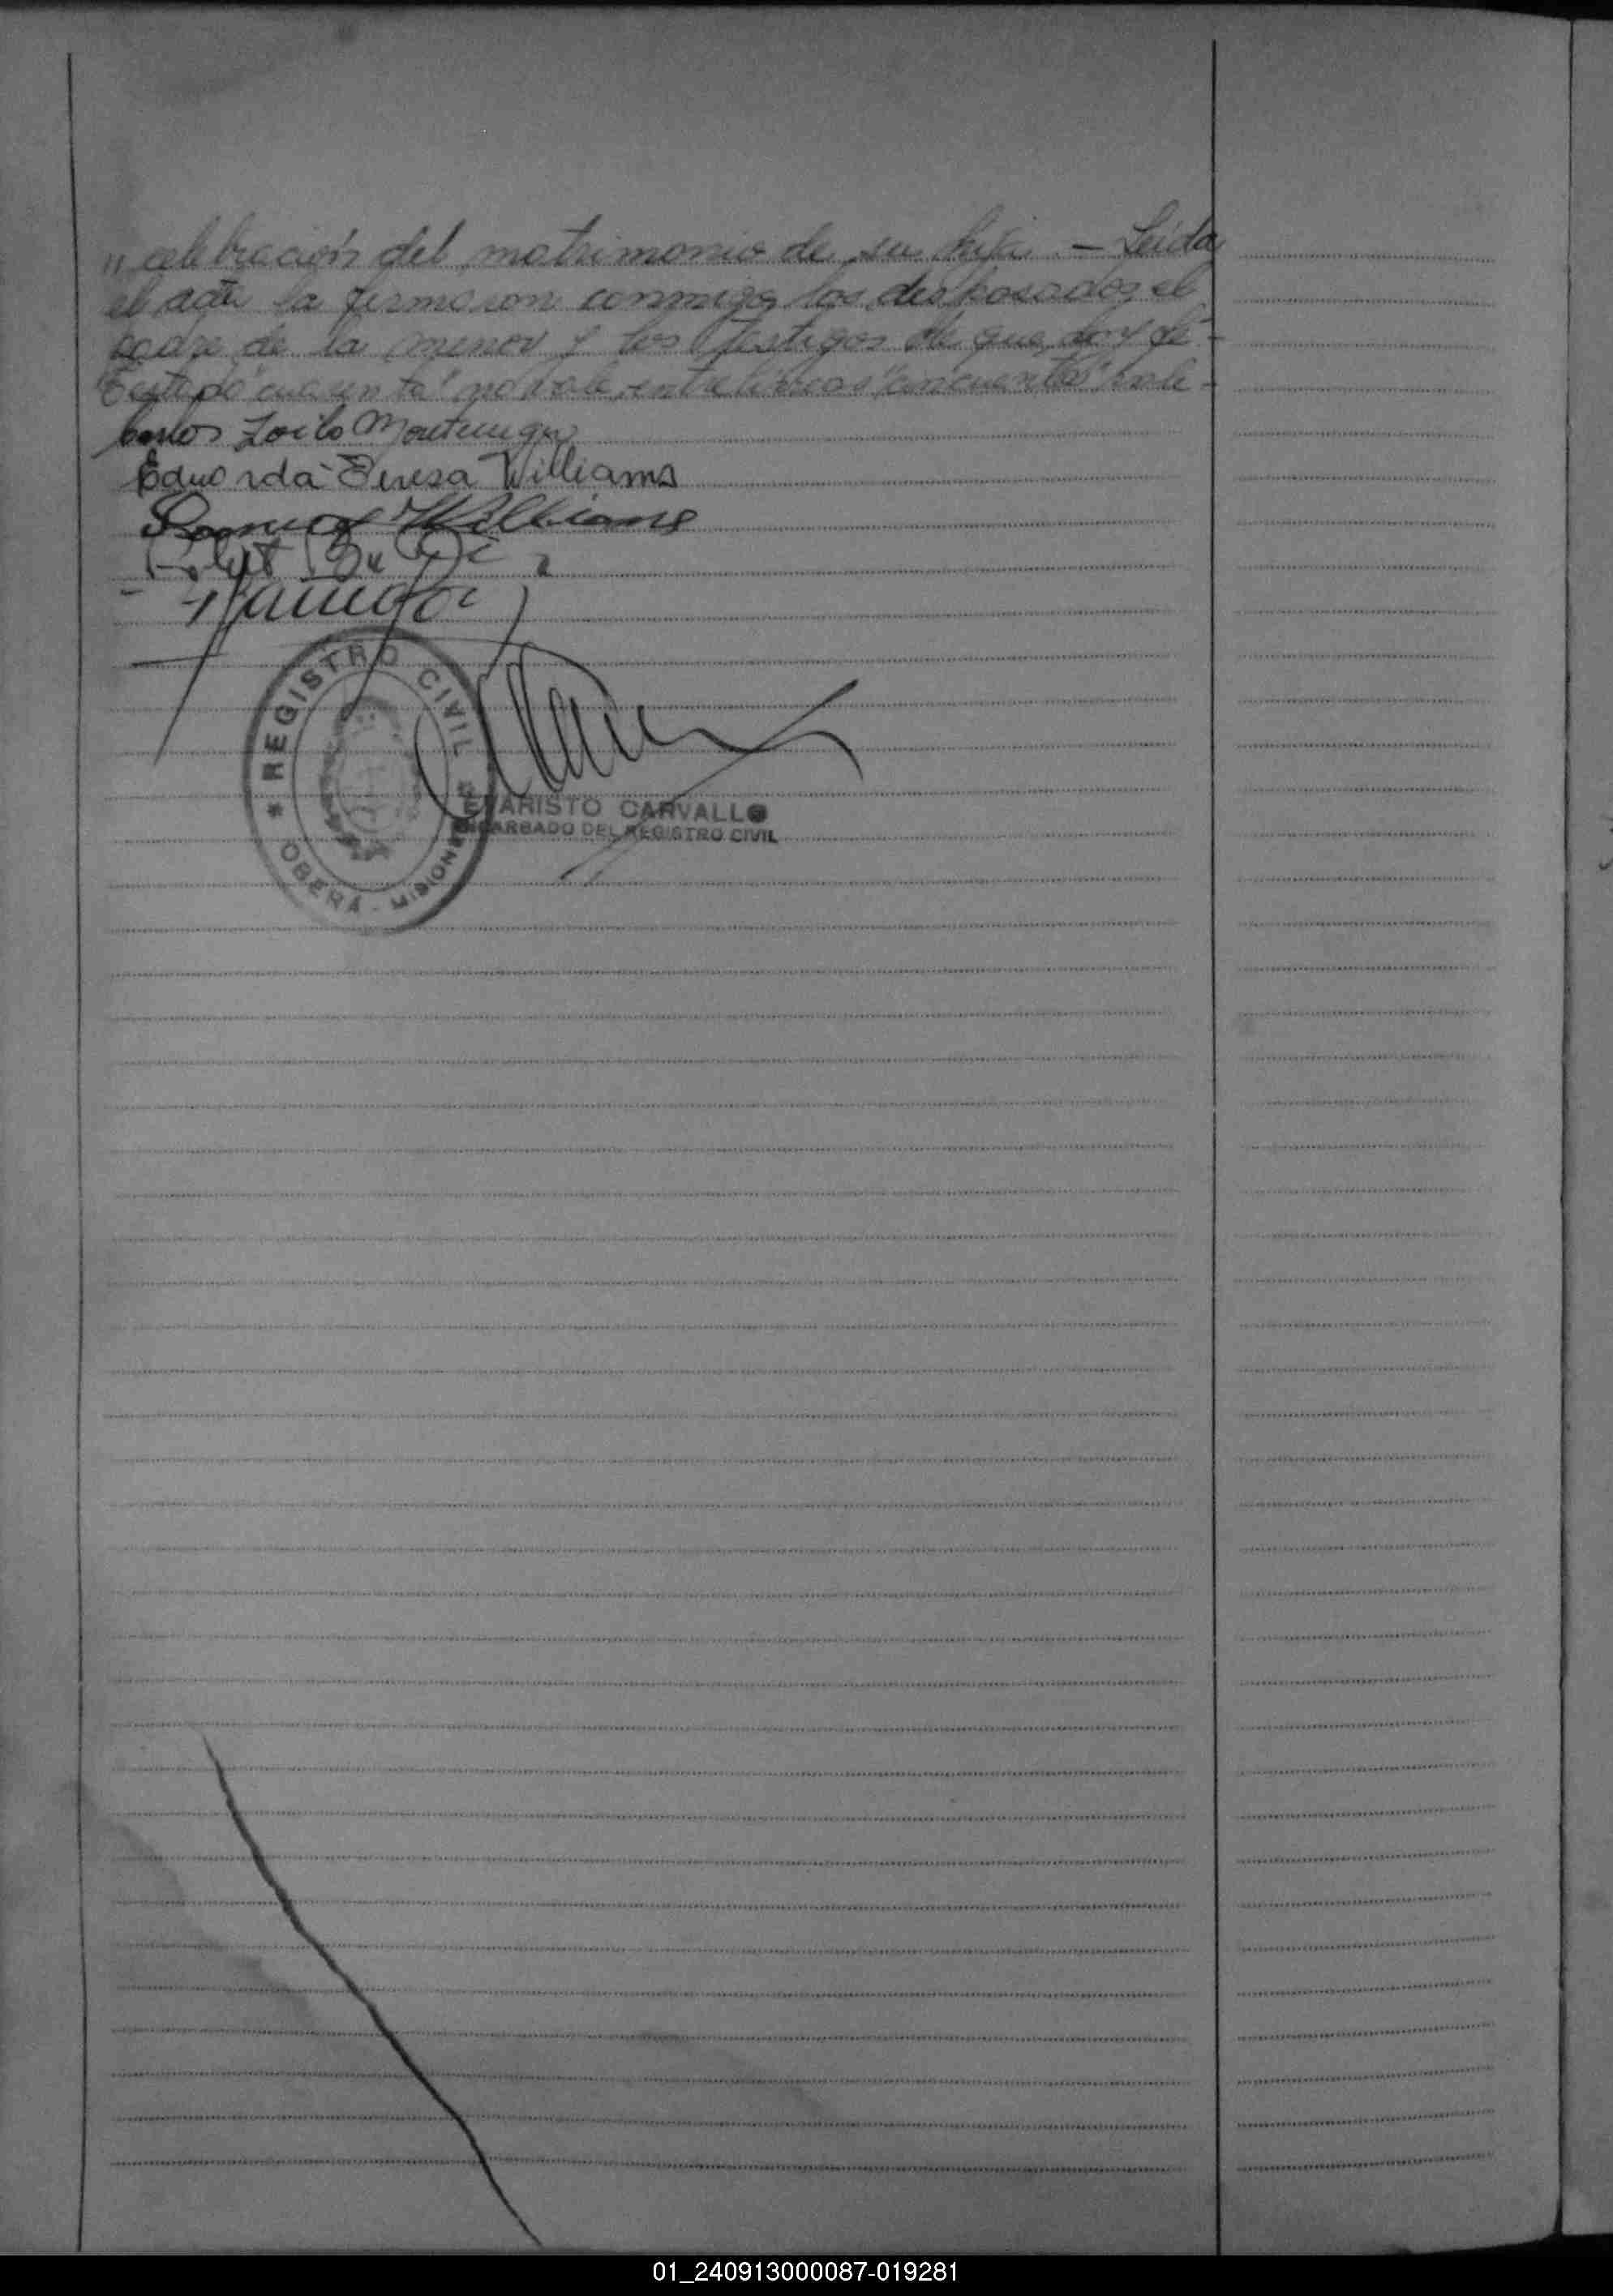 " celebración del matrimonio de su hija. - Leída
el acta la firmaron conmigo los desposados, el
padre de la menor y los testigos de que doy fé -
Testado "cuarenta" no vale, entrelíneas "cincuenta" vale -
Carlos Zoilo Montenegro
Eduarda Teresa Williams
Williams
REGISTRO CIVIL
OBERÁ - MISIONES
EVARISTO CARVALLO
ENCARGADO DEL REGISTRO CIVIL
01_240913000087-019281